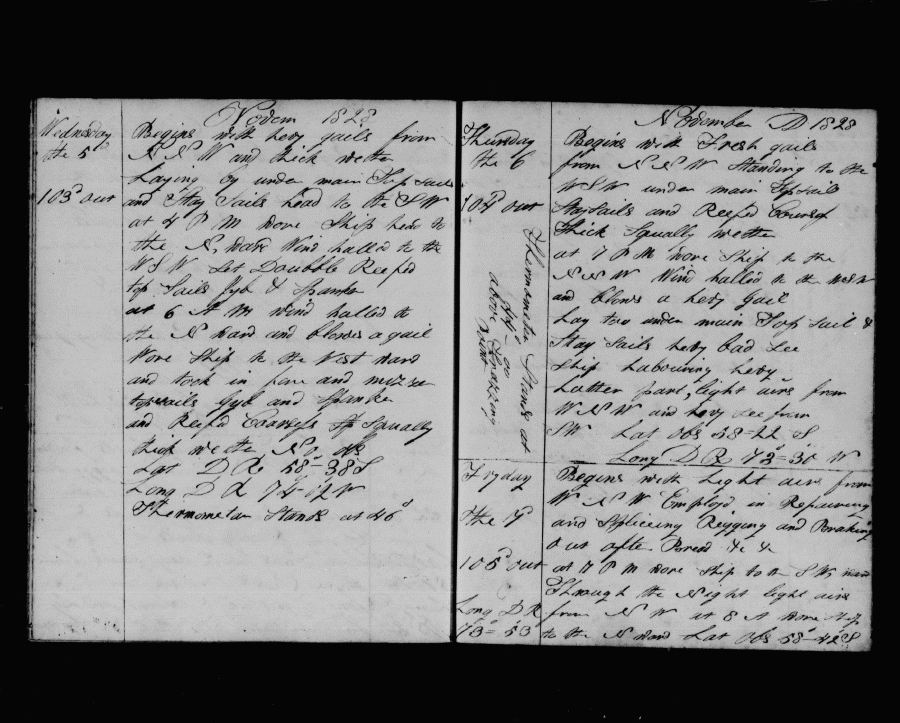 Novem 1828
Wednesday
the 5
103d out
Begins with hevy gails from
N N W and thick wether
Laying by under main Top sail
and Stay Sails head to the SW
at 4 P M wore Ship head to
the N, ward Wind halled to the
WSW Set Doubble Reefd
top Sails Jyb & Spanker
at 6 A M wind halled to
the N ward and blows a gail
Wore Ship to the West ward
and took in fore and mizen
topsails Jyb and Spanker
and Reefd Courses Squally
thick wether No obs
Lat D R 58°-38 S
Long D R 74-12 W
Thermometer Stands at 46°
November D 1828
Thursday
the 6
104 out
Thermometer Stands at
44 or
above Freazing
point
Begins with Fresh gails
from N N W Standing to the
WSW under main Topsails
Staysails and Reefd Courses
Thick Squally wether
at 7 P M wore Ship to the
N N W Wind halled to the WSW
and blows a hevy gail
Lay too under main Top sail &
Stay Sails hevy bad See
Ship Labouring hevy
Latter part, light airs from
W N W and hevy See from
SW Lat Obs 58-22 S
Long D R 72-30 W
Fryday
the 7
105 out
Long D R
73-53
Begins with Light airs from
W N W Employd in Repairing
and Spliceing Rigging and Breaking
out after Bread &c &c
at 7 P M wore Ship to the S W, ward
Through the Night light airs
from N W at 8 A wore Ship
to the N ward Lat Obs 58-42 S